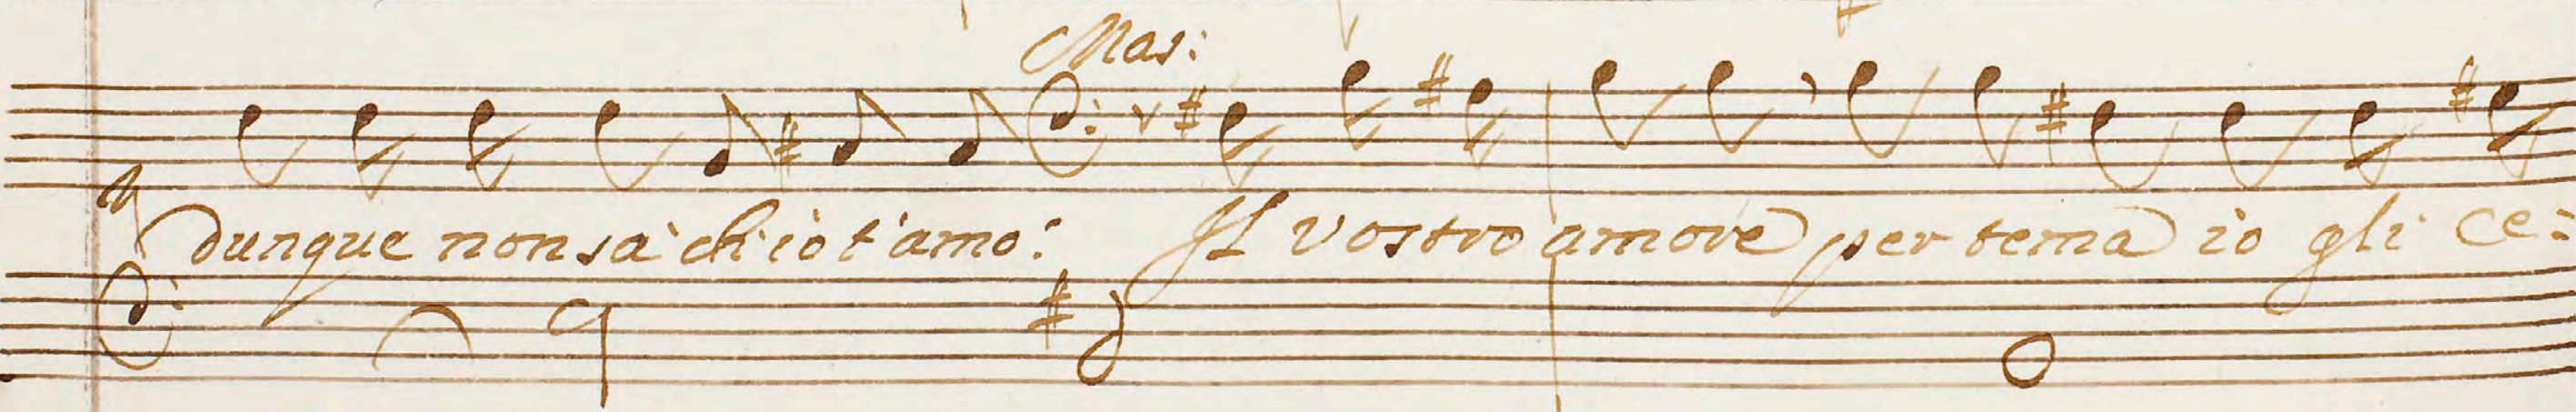 Mas:
dunque non sa ch'io t'amo: Il vostro amore per tema io gli ce=